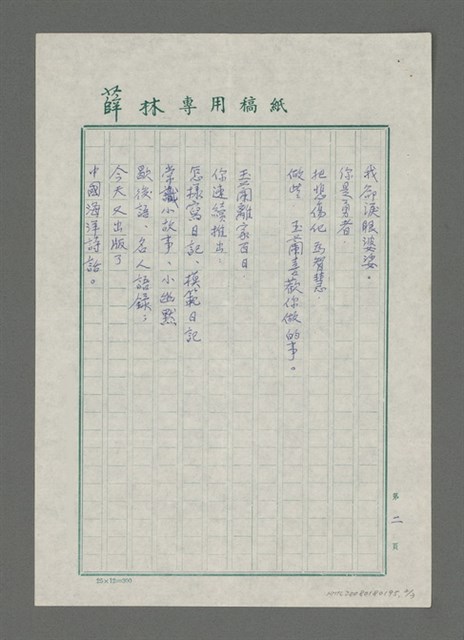 薛林專用稿紙
我卻淚眼婆娑。
你是勇者．
把悲傷化為智慧
做些　玉蘭喜歡你做的事。
玉蘭離家百日．
你連續推出：
怎樣寫日記、模範日記
常識小故事、小幽默
歇後語、名人語錄；
今天又出版了
中國海洋詩話。
第二頁
25×12=300